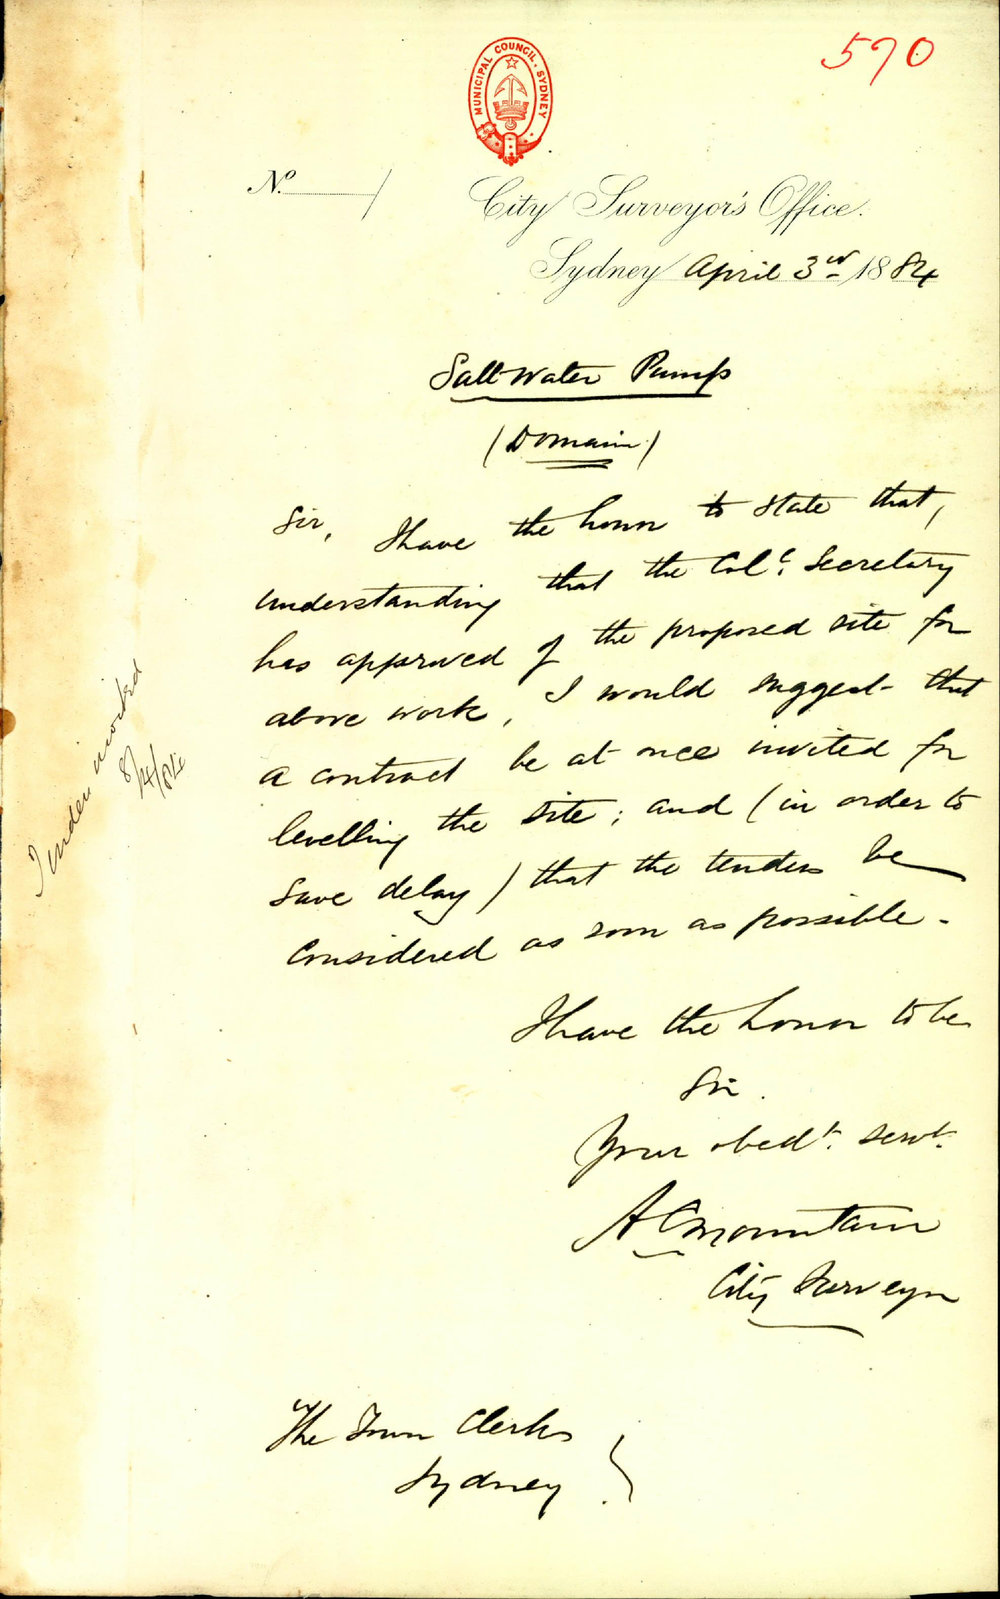 590
MUNICIPAL COUNCIL. SYDNEY
No.
City Surveyor's Office.
Sydney April 3rd 1884
Salt Water Pump
(Domain)
Sir, I have the honor to state that,
understanding that the Coll. Secretary
has approved of the proposed site for
above work, I would suggest that
a contract be at once invited for
levelling the site; and (in order to
save delay) that the tenders be
considered as soon as possible.
I have the honor to be
Sir.
Your obedt. servt.
A C Mountain
City Surveyor
The Town Clerk
Sydney
Tenders invited
8/4/84